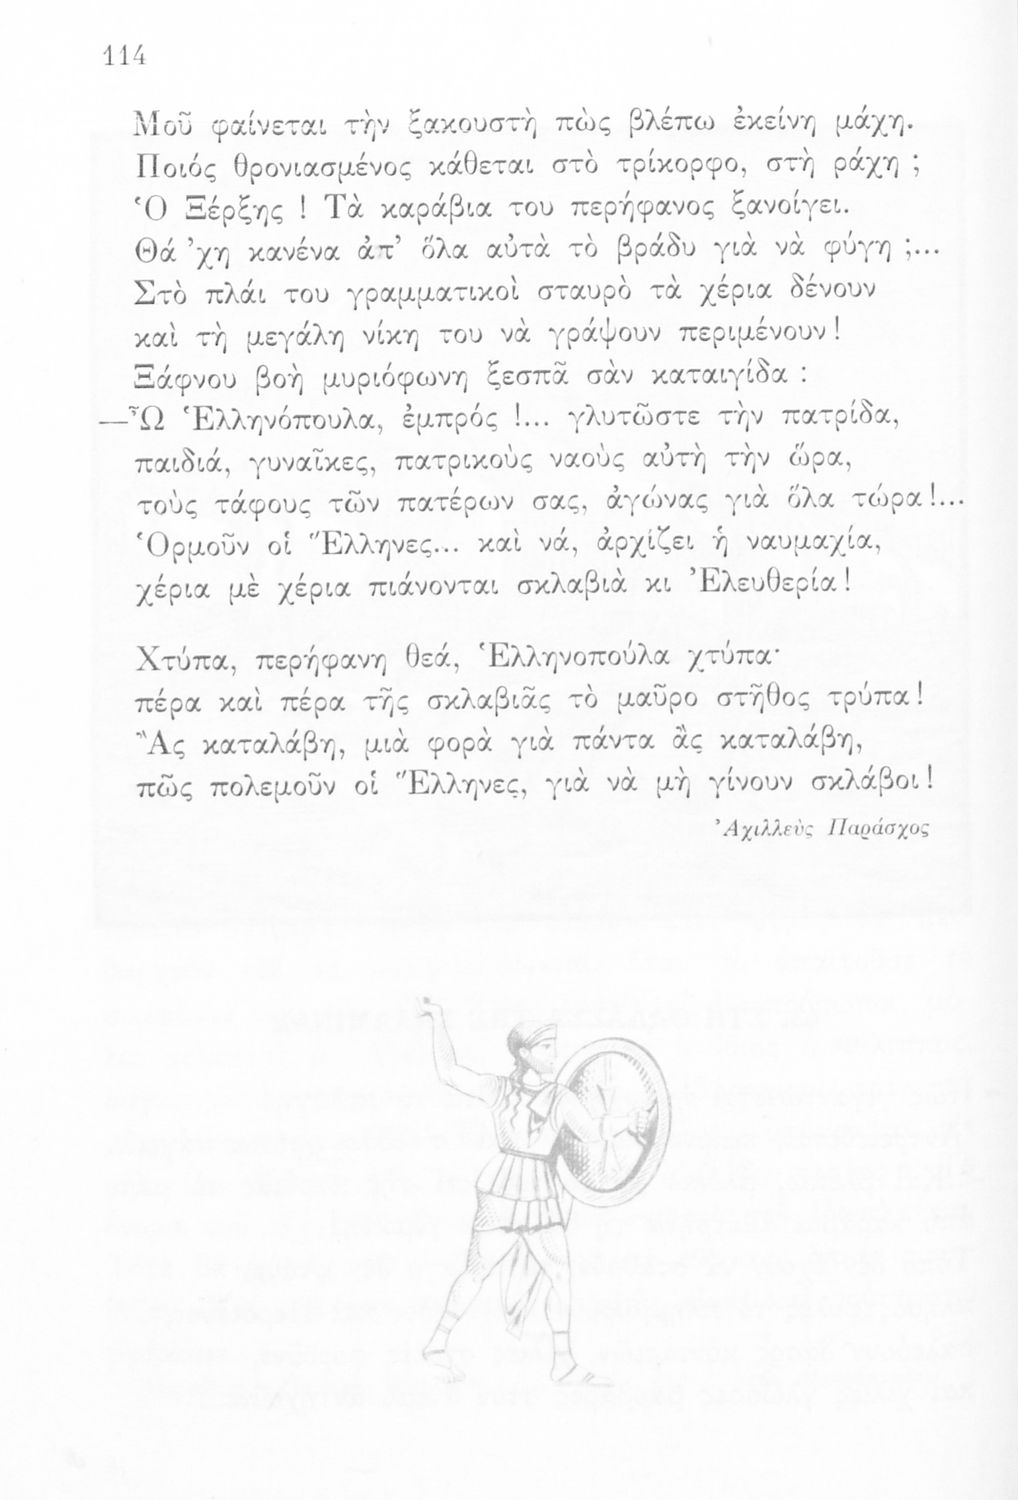 114
Μοῦ φαίνεται τὴν ξακουστὴ πὼς βλέπω ἐκείνη μάχη.
Ποιός θρονιασμένος κάθεται στὸ τρίκορφο, στὴ ράχη ;
Ὁ Ξέρξης ! Τὰ καράβια του περήφανος ξανοίγει.
Θά ’χη κανένα ἀπ’ ὅλα αὐτὰ τὸ βράδυ γιὰ νὰ φύγη ;...
Στὸ πλάι του γραμματικοὶ σταυρὸ τὰ χέρια δένουν
καὶ τὴ μεγάλη νίκη του νὰ γράψουν περιμένουν!
Ξάφνου βοὴ μυριόφωνη ξεσπᾶ σὰν καταιγίδα :
—Ὦ Ἑλληνόπουλα, ἐμπρός !... γλυτῶστε τὴν πατρίδα,
παιδιά, γυναῖκες, πατρικοὺς ναοὺς αὐτὴ τὴν ὥρα,
τοὺς τάφους τῶν πατέρων σας, ἀγώνας γιὰ ὅλα τώρα!...
Ὁρμοῦν οἱ Ἕλληνες... καὶ νά, ἀρχίζει ἡ ναυμαχία,
χέρια μὲ χέρια πιάνονται σκλαβιὰ κι Ἐλευθερία!
Χτύπα, περήφανη θεά, Ἑλληνοπούλα χτύπα·
πέρα καὶ πέρα τῆς σκλαβιᾶς τὸ μαῦρο στῆθος τρύπα!
Ἂς καταλάβη, μιὰ φορὰ γιὰ πάντα ἂς καταλάβη,
πῶς πολεμοῦν οἱ Ἕλληνες, γιὰ νὰ μὴ γίνουν σκλάβοι!
Ἀχιλλεὺς Παράσχος